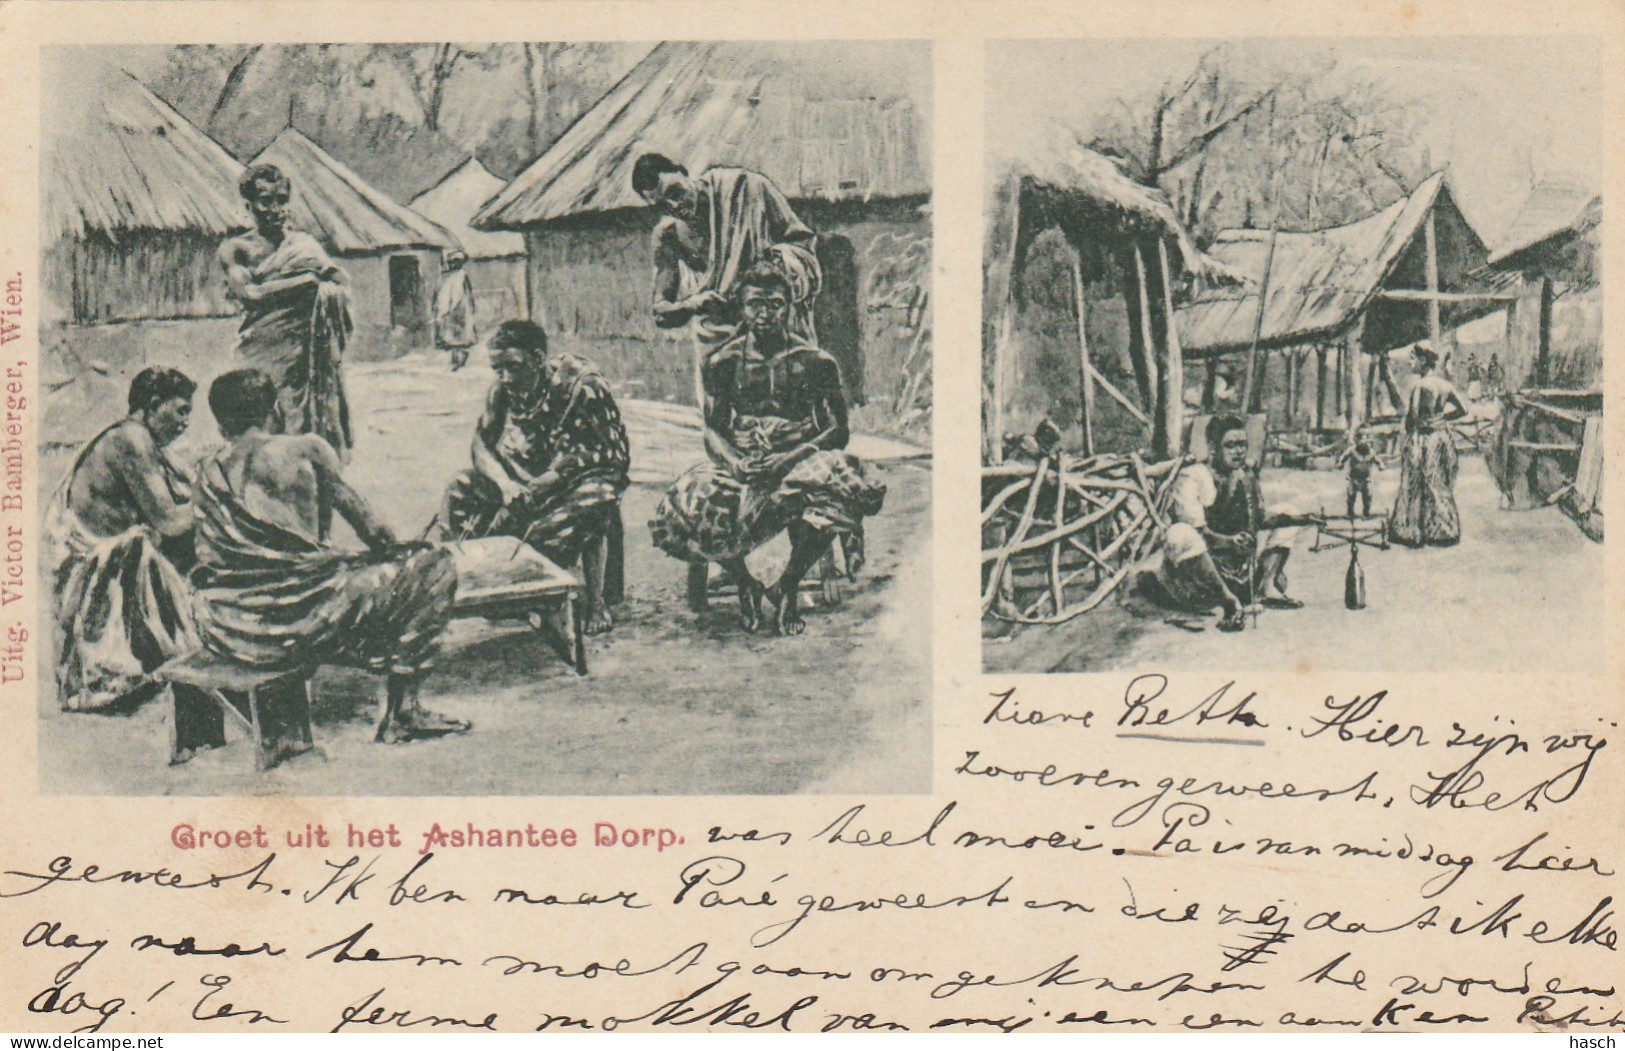 Uitg. Victor Bamberger, Wien.
Lieve Betth. Hier zijn wij
zooeven geweest. Het
Groet uit het Ashantee Dorp. was heel mooi. Pa is van middag hier
geweest. Ik ben naar Paré geweest en die zej dat ik elke
dag naar hem moet gaan om geknepen te worden
dag! Een ferme mokkel van mij en een aan Ken
hasch
delcampe.net